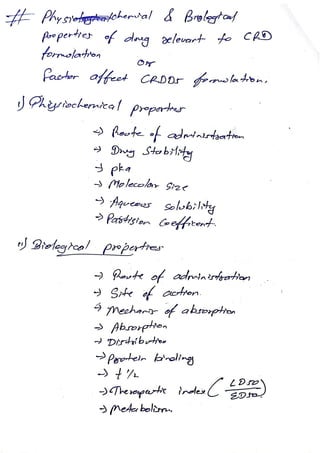 # Physiochemical & Biological
properties of drug relevant to CRD
formulation
or
factor affect CRDDs formulation.
i) Physiochemical properties
→ Route of administration
→ Drug Stability
→ pka
→ Molecular Size
→ Aqueous solubility
→ Partision Coefficent.
ii) Biological properties
→ Route of administration
→ Site of action.
→ Mechanis of absorption
→ Absorption
→ Distribution
→ Protein binding
→ t ½
→ Therapeutic index ( LD50 / ED50 )
→ Metabolism.